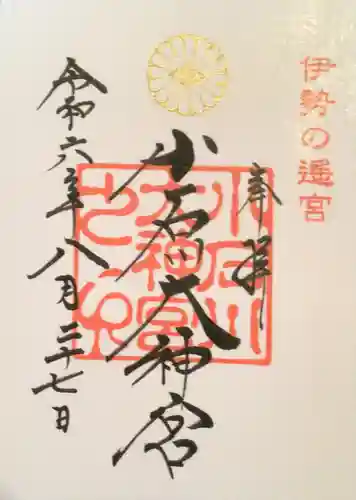 伊勢の遥宮
奉拝
小石川大神宮
令和六年八月二十七日